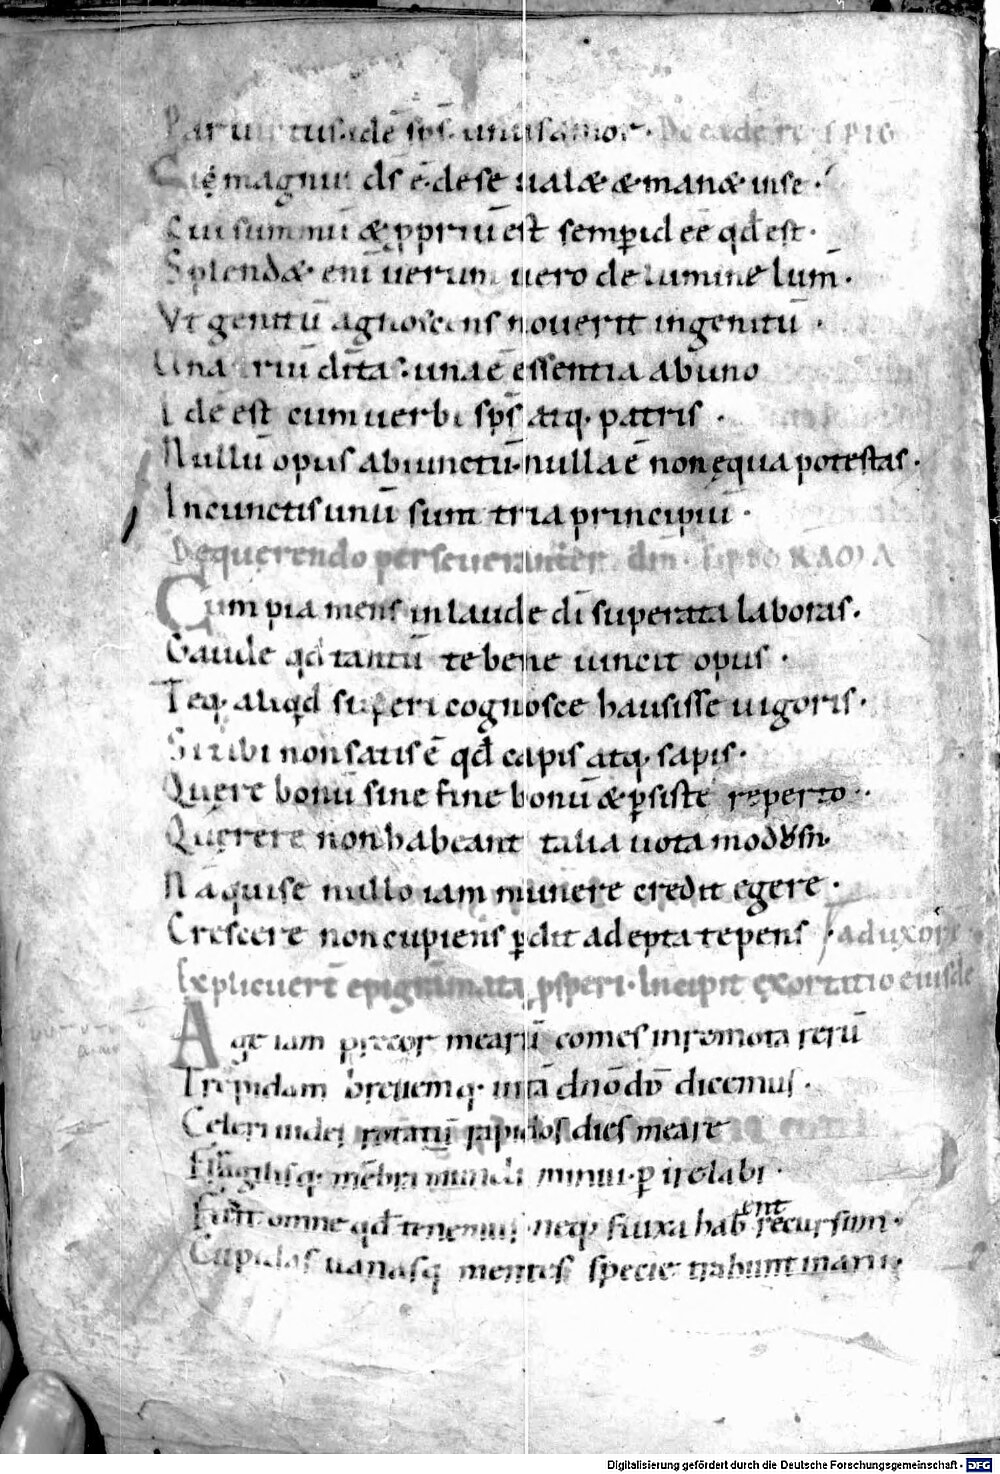 Par uirtus·idē sp̄s· unus amor·
Sic magnus ds̄ ē·de se ualæ & manæ in se·
Cui summū & ꝓpriū est semꝑ id eē qd̄ est·
Splendæ enī uerum uero de lumine lum̄·
Vt genitū agnoscens nouerit ingenitū·
Una triū dītas·una ē essentia ab uno
Idē est cum uerbi sp̄s atq· patris·
Nullū opus abiunctū·nulla ē non ęqua potestas·
In cunctis unū sum tria principiū·
De querendo perseueranter dm̄·
Cum pia mens in laude dī superata laboras·
Gaude qd̄ tantū te bene uincit opus·
Teq· aliqd̄ superi cognosce hausisse uigoris·
Si tibi non satis ē qd̄ capis atq· sapis·
Quęre bonū sine fine bonū & ꝑsiste reperto··
Quęrere non habeant talia uota modū
Nā qui se nullo iam munere credit egere·
Crescere non cupiens ꝑdit adepta tepens· ad uxorē
Explicuert̄ epigrāmata ꝓsperi·Incipit exortatio eiusdē
Age iam precor mearū comes inremota rerū
Trepidam breuemq· uitā dn̄o dō dicemus·
Celeri uides rotatū rapidos dies meare
Fragilisq· mēbra mundi minui·ꝑire labi·
Fugit omne qd̄ tenemus·neq· fluxa hab̄ent recursum·
Cupidas uanasq mentes specie trahunt inani·